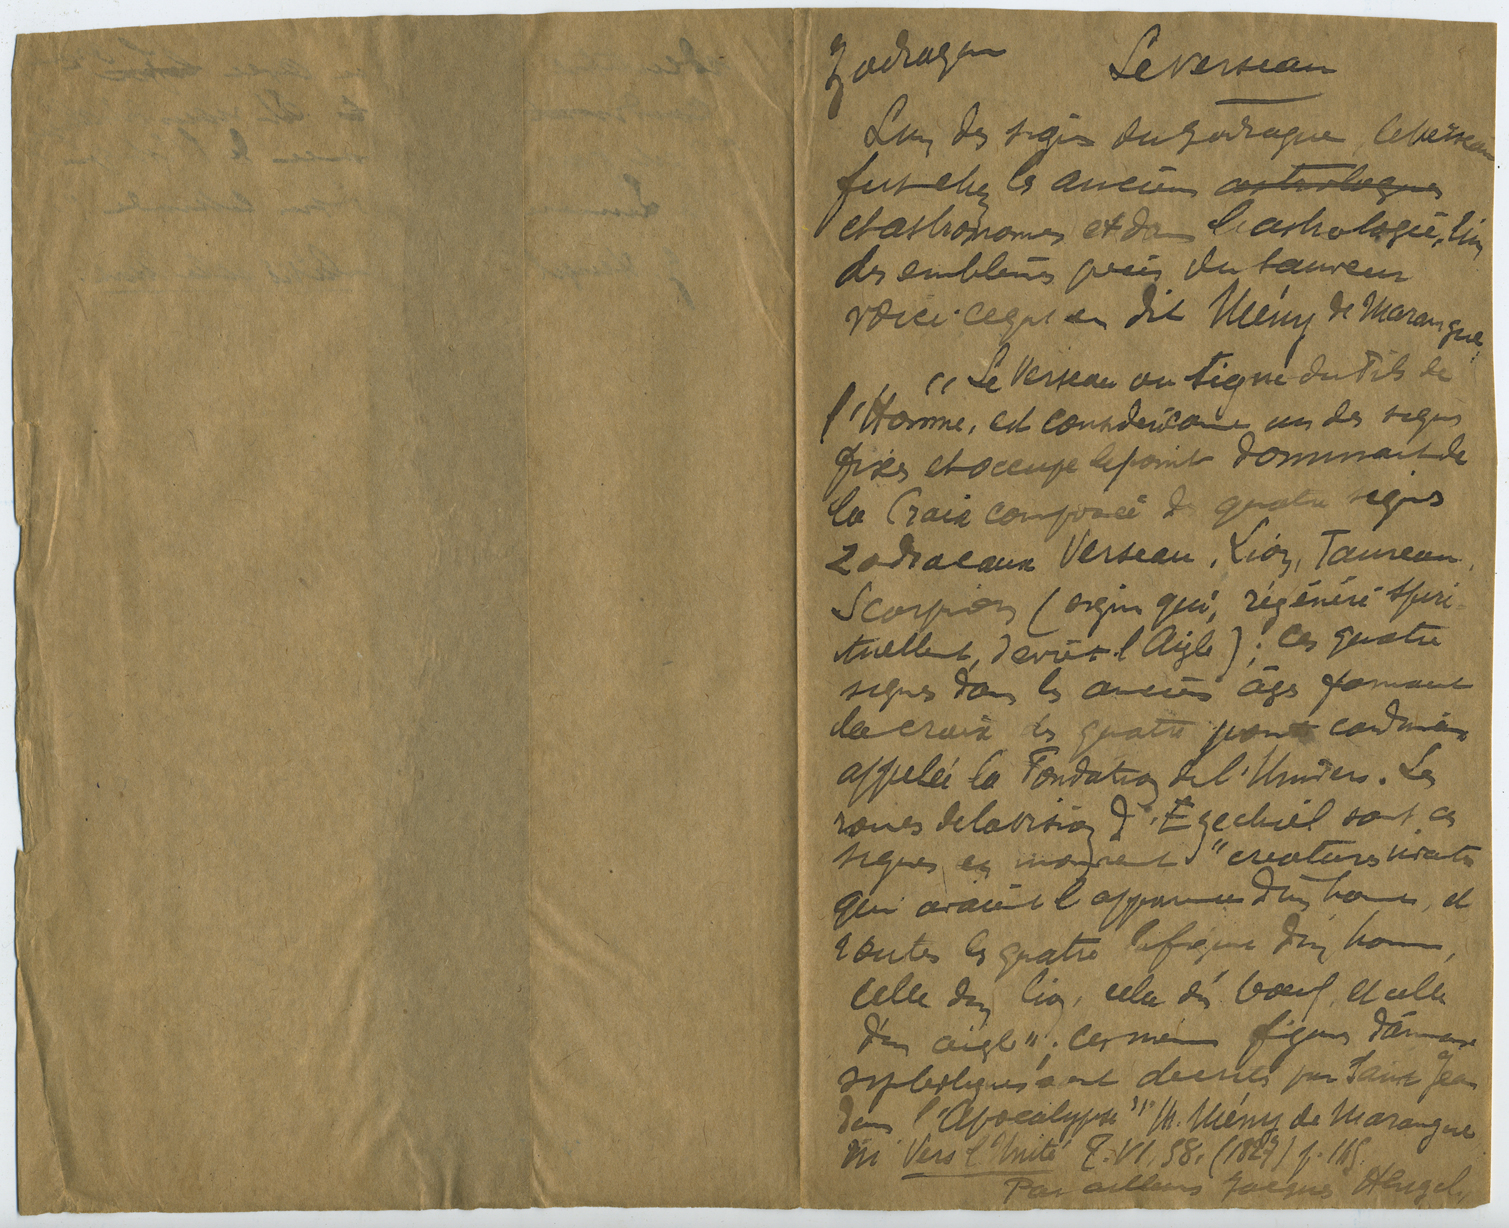 Zodiaque Le Verseau
L'un des signes du Zodiaque, le verseau
fut chez les anciens astrologues
et astronomes et dans l'astrologie, l'un
des emblèmes du taureau
voici ce qu'en dit Mény de Marangue,
"Le Verseau ou signe du Fils de
l'Homme, est considéré comme un des signes
fixes et occupe le point dominant de
la Croix composée de quatre signes
Zodiacaux Verseau, Lion, Taureau,
Scorpion (signe qui, régénéré spiri-
tuellement, devient l'Aigle); ces quatre
signes dans les anciens âges formaient
la croix des quatre points cardinaux
appelée la Fondation de l'Univers. Les
roues de la vision d'Ezechiel sont ces
signes en mouvement "creatures vivantes
qui avaient l'apparence d'un homme, et
toutes les quatre la figure d'un homme,
celle d'un lion, celle d'un boeuf, et celle
d'un aigle"; ces mêmes figures d'animaux
symboliques sont decrites par Saint Jean
dans l'Apocalypse" M. Mény de Marangue
in Vers l'Unité T. VI, 58. (1927) p. 165.
Par ailleurs Jacques